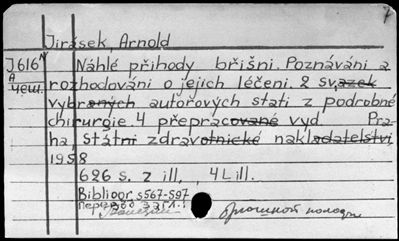 Jirásek, Arnold
J616 Náhlé přihody břišni. Poznáváni a
A rozhodováni o jejich léčeni. 2 svazek
чеш. vybraných autorových stati z podrobné
chirurgie. 4 přepracované vyd Pra-
ha, Státni zdravotnické nakladatelstvi,
1958
626 s. z ill, 4 L ill.
Bibliogr. s567-597
Перевод загл.:
Брюшной полости